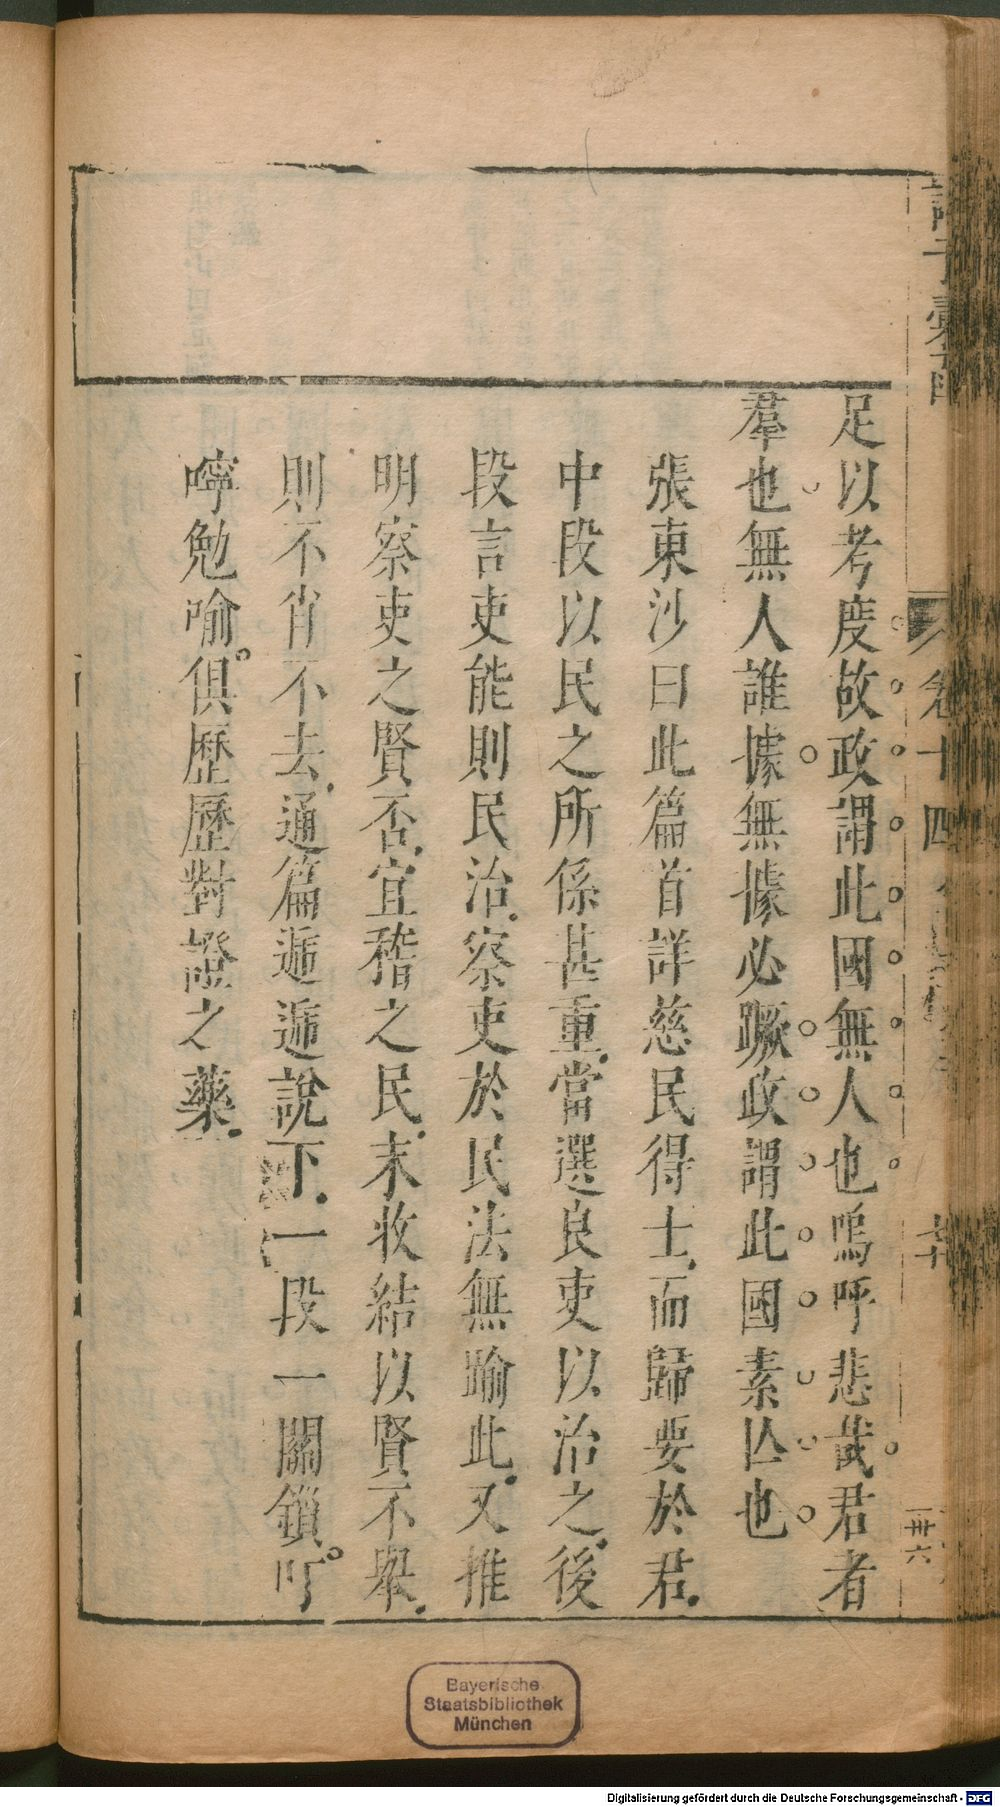 足以考度故政謂此國無人也嗚呼悲哉君者
羣也無人誰據無據必蹶政謂此國素亾也
張東沙曰此篇首詳慈民得士而歸要於君
中段以民之所係甚重當選良吏以治之後
段言吏能則民治察吏於民法無踰此又推
明察吏之賢否宜稽之民末收結以賢不舉
則不肖不去通篇遞遞說下一段一關鎖叮
嚀勉喻俱歷歷對證之藥
卷十四
一卅六
Bayerische
Staatsbibliothek
München
Digitalisierung gefördert durch die Deutsche Forschungsgemeinschaft - DFG